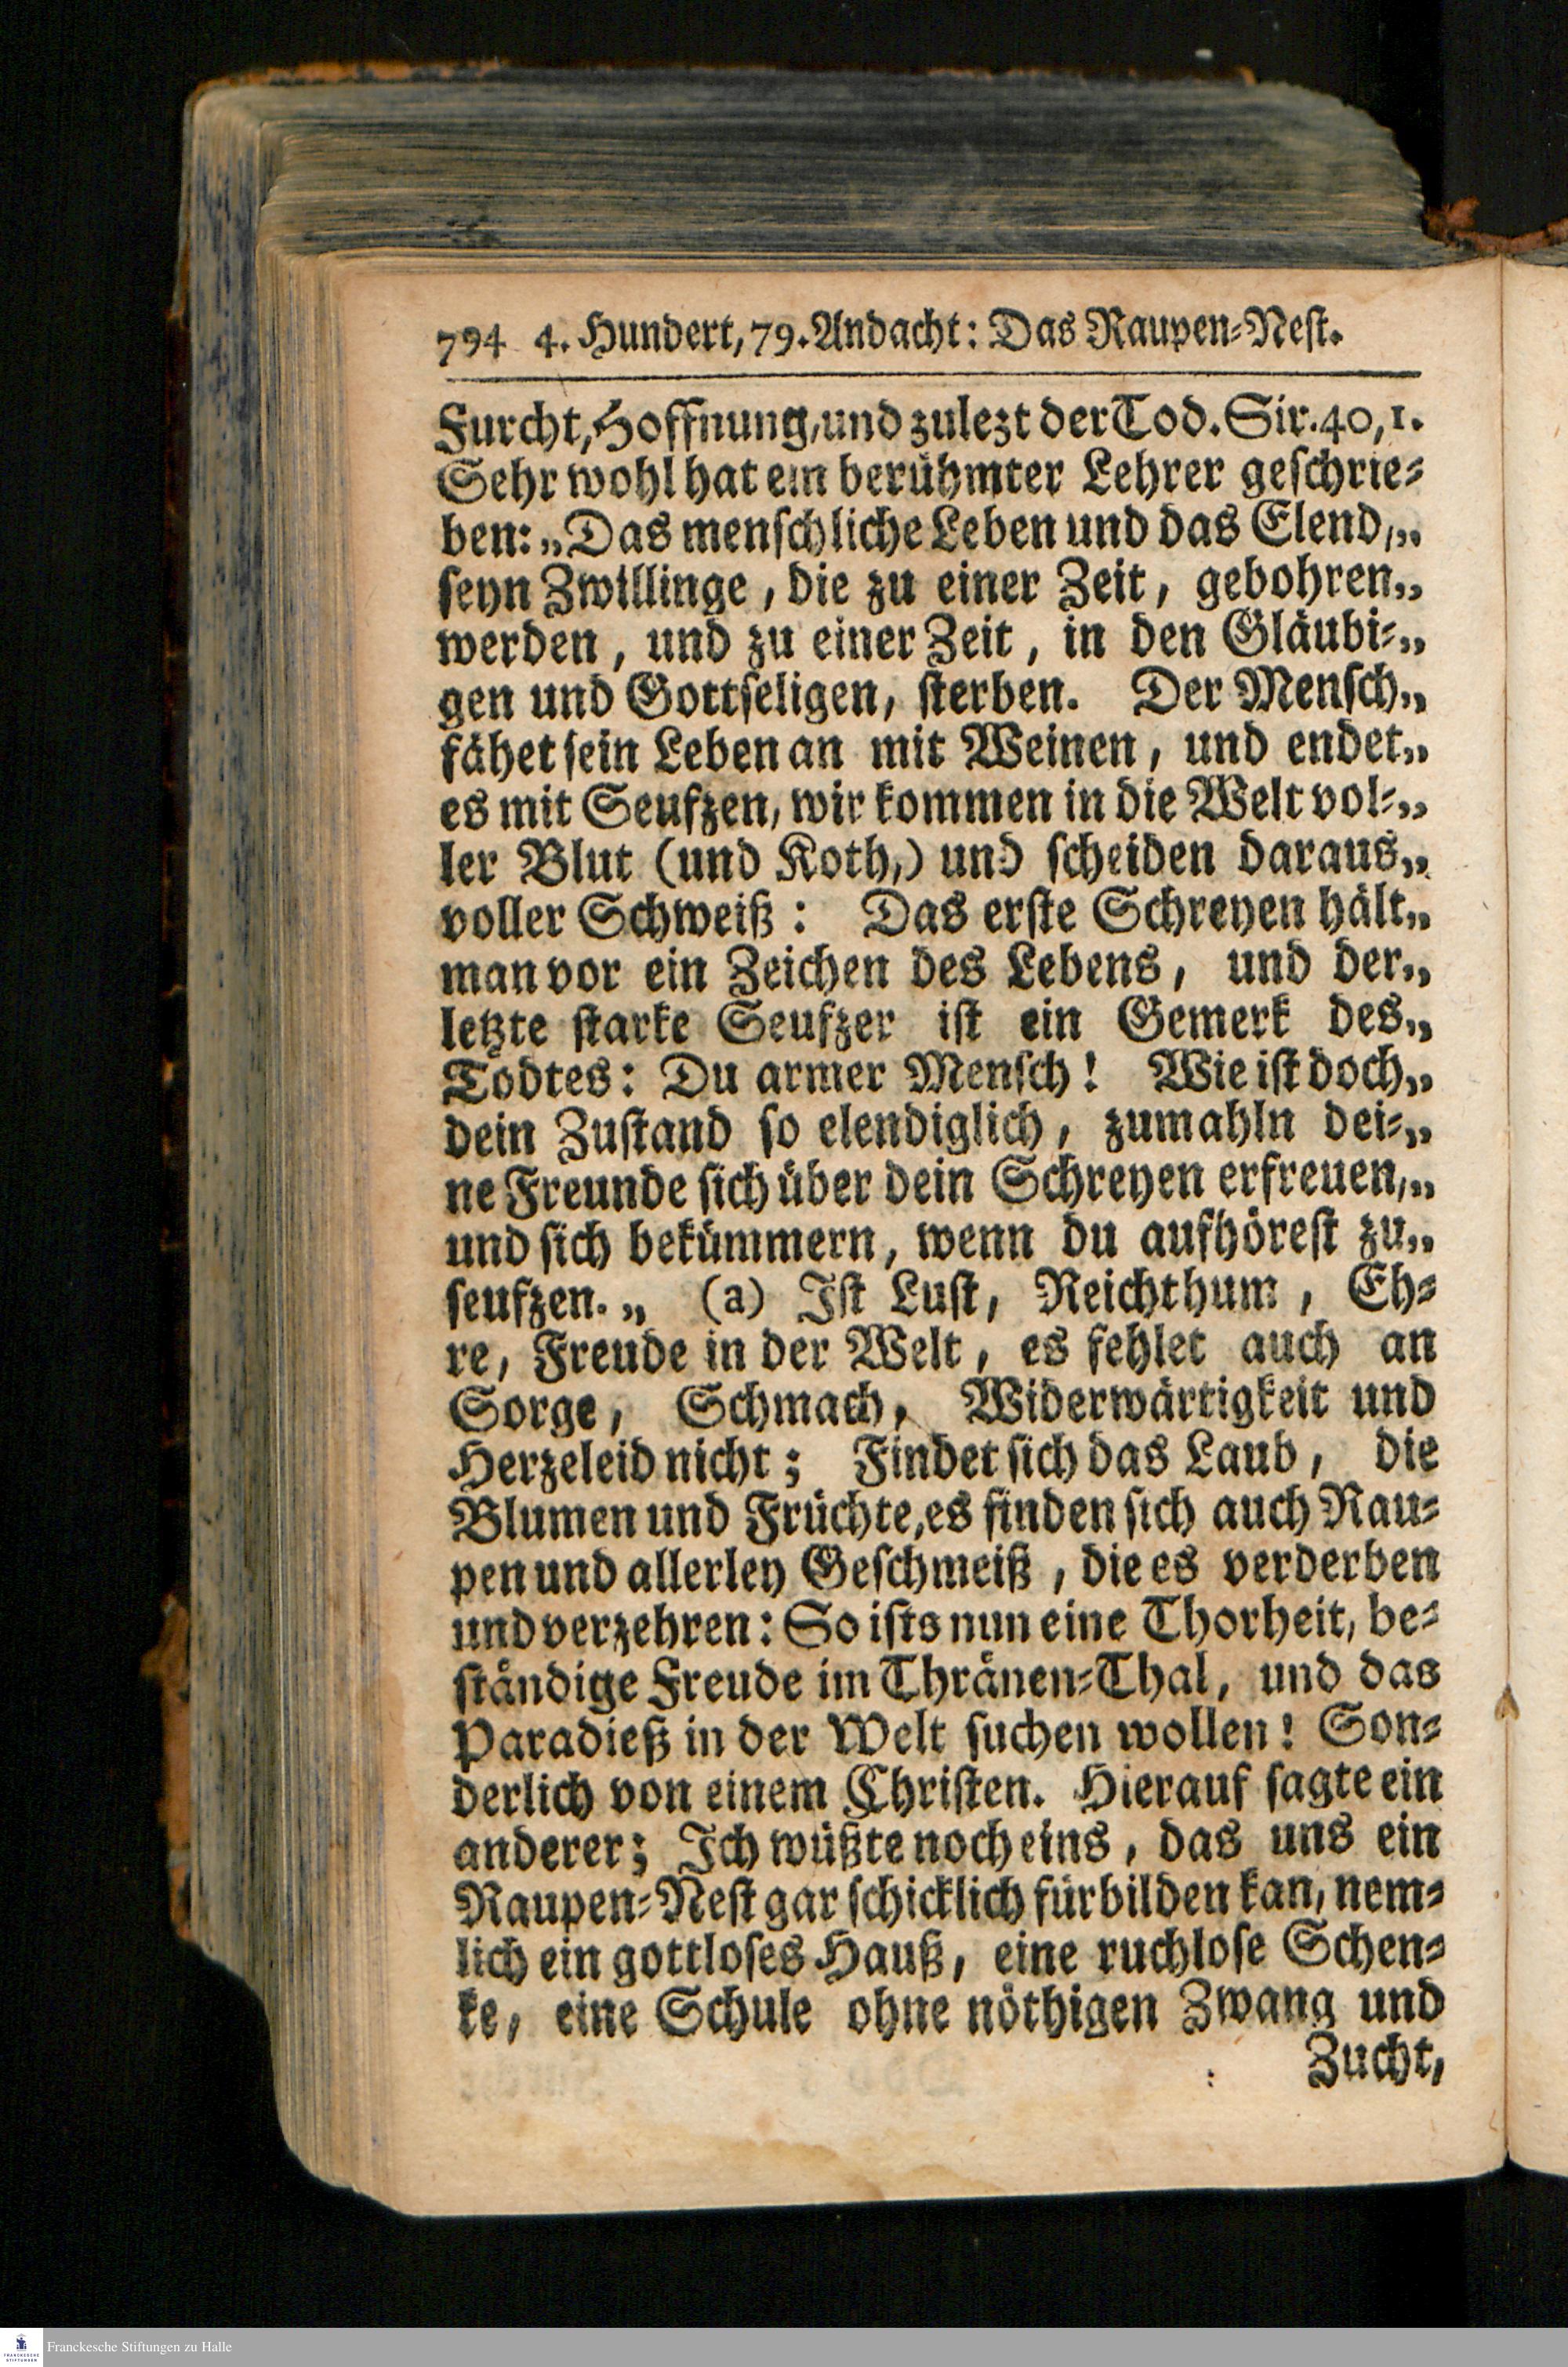 794 4. Hundert, 79. Andacht: Das Raupen-Nest.
Furcht, Hoffnung, und zulezt der Tod. Sir. 40, 1.
Sehr wohl hat ein berühmter Lehrer geschrie-
ben: „Das menschliche Leben und das Elend,„
seyn Zwillinge, die zu einer Zeit, gebohren„
werden, und zu einer Zeit, in den Gläubi-„
gen und Gottseligen, sterben. Der Mensch„
fähet sein Leben an mit Weinen, und endet„
es mit Seufzen, wir kommen in die Welt vol-„
ler Blut (und Koth,) und scheiden daraus„
voller Schweiß: Das erste Schreyen hält„
man vor ein Zeichen des Lebens, und der„
letzte starke Seufzer ist ein Gemerk des„
Todtes: Du armer Mensch! Wie ist doch„
dein Zustand so elendiglich, zumahln dei-„
ne Freunde sich über dein Schreyen erfreuen,„
und sich bekümmern, wenn du aufhörest zu„
seufzen.„ (a) Ist Lust, Reichthum, Eh-
re, Freude in der Welt, es fehlet auch an
Sorge, Schmach, Widerwärtigkeit und
Herzeleid nicht; Findet sich das Laub, die
Blumen und Früchte, es finden sich auch Rau-
pen und allerley Geschmeiß, die es verderben
und verzehren: So ists nun eine Thorheit, be-
ständige Freude im Thränen-Thal, und das
Paradieß in der Welt suchen wollen! Son-
derlich von einem Christen. Hierauf sagte ein
anderer; Ich wüßte noch eins, das uns ein
Raupen-Nest gar schicklich fürbilden kan, nem-
lich ein gottloses Hauß, eine ruchlose Schen-
ke, eine Schule ohne nöthigen Zwang und
Zucht,
Franckesche Stiftungen zu Halle
FRANCKESCHE
STIFTUNGEN